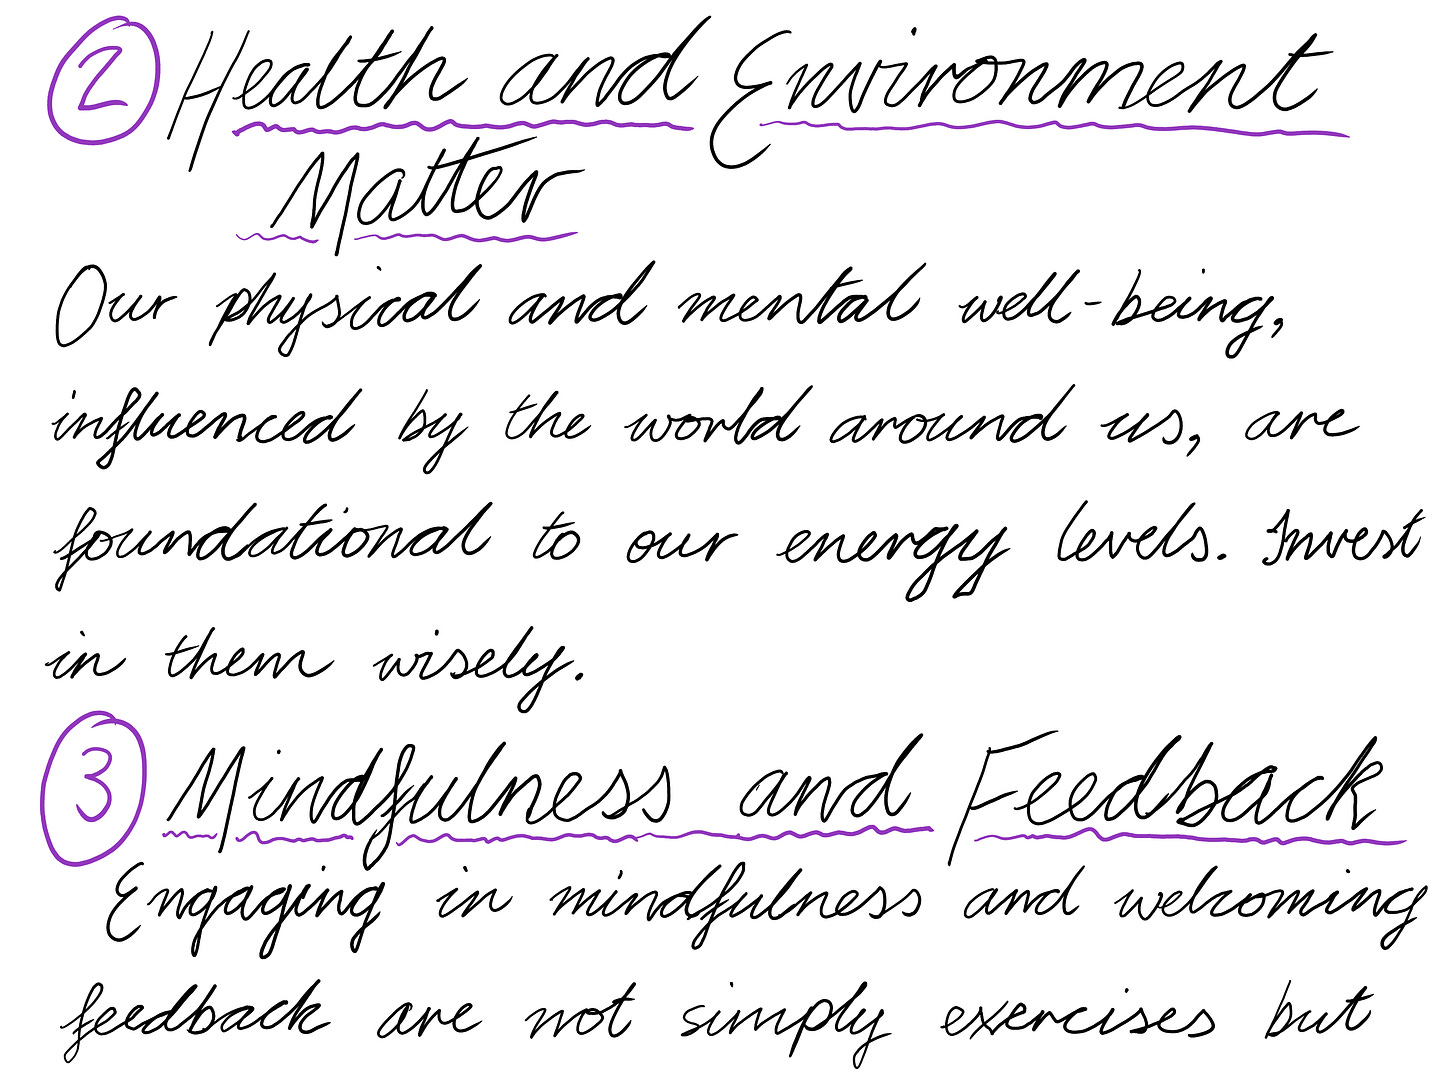 2 Health and Environment
Matter
Our physical and mental well-being,
influenced by the world around us, are
foundational to our energy levels. Invest
in them wisely.
3 Mindfulness and Feedback
Engaging in mindfulness and welcoming
feedback are not simply exercises but